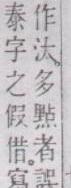 作汰。多點者誤
泰字之假借。寫